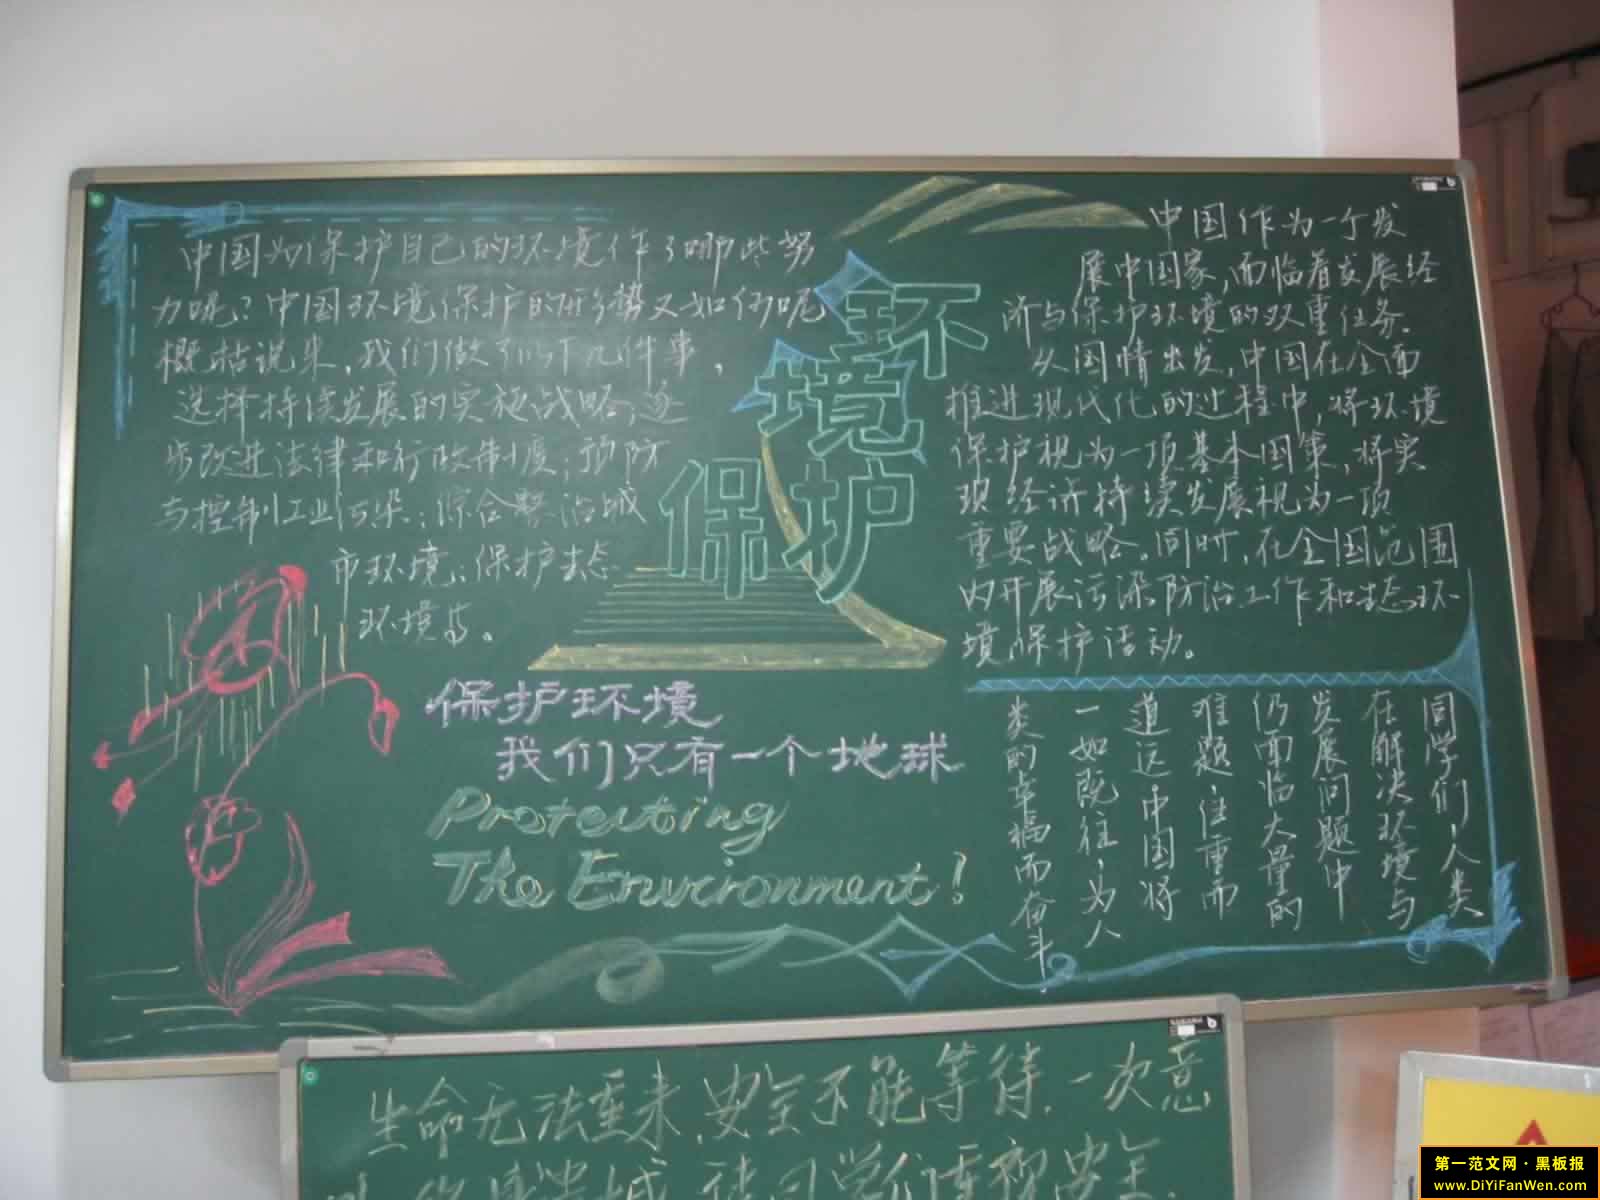 中国为保护自己的环境作了哪些努
力呢？中国环境保护的形势又如何呢
概括说来，我们做了以下几件事，
选择持续发展的实施战略；逐
步改进法律和行政制度；预防
与控制工业污染；综合整治城
市环境；保护生态
环境与。
环境
保护
保护环境
我们只有一个地球
Protecting
The Environment!
中国作为一个发
展中国家，面临着发展经
济与保护环境的双重任务。
从国情出发，中国在全面
推进现代化的过程中，将环境
保护视为一项基本国策，将实
现经济持续发展视为一项
重要战略。同时，在全国范围
内开展污染防治工作和生态环
境保护活动。
同学们，人类
在解决环境与
发展问题中
仍面临大量的
难题，任重而
道远，中国将
一如既往，为人
类的幸福而奋斗
生命无法重来，安全不能等待，一次意
请同学们重视安全.
第一范文网·黑板报
www.DiYiFanWen.com